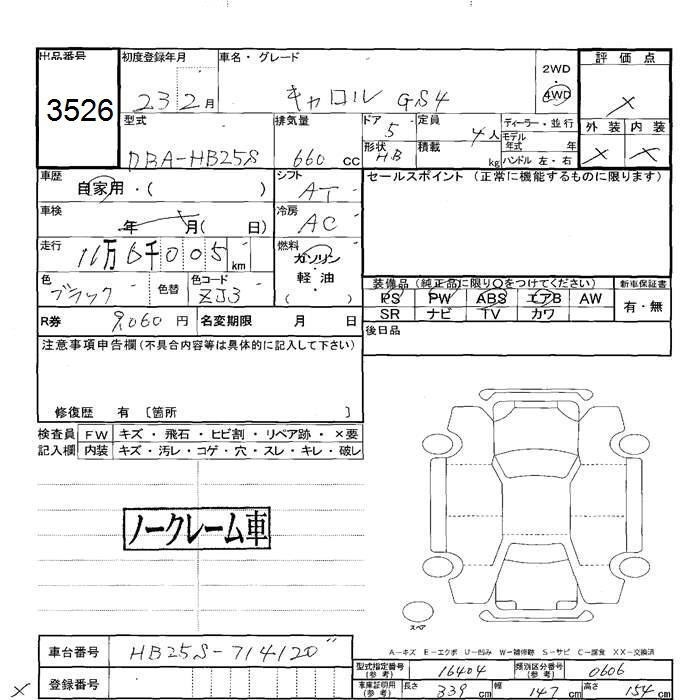 出品番号 初度登録年月 車名・グレード 評価点
3526 23 2月 キャロル GS4 2WD 4WD ×
型式 排気量 ドア 5 定員 4人 ディーラー・並行 外装 内装
DBA-HB25S 660 cc 形状 HB 積載 kg モデル年式 年 × ×
ハンドル 左・右
車歴 自家用・( ) シフト AT セールスポイント(正常に機能するものに限ります)
車検 年 月( 日) 冷房 AC
走行 11万6千005km 燃料 ガソリン・軽油・( )
色 ブラック 色替 色コード ZJ3 装備品(純正品に限り○をつけてください) 新車保証書
PS PW ABS エアB AW 有・無
R券 9,060円 名変期限 月 日 SR ナビ TV カワ
注意事項申告欄(不具合内容等は具体的に記入して下さい) 後日品
修復歴 有〔箇所 〕
検査員 FW キズ・飛石・ヒビ割・リペア跡・×要
記入欄 内装 キズ・汚レ・コゲ・穴・スレ・キレ・破レ
ノークレーム車
スペア
A-キズ E-エクボ U-凹み W-補修跡 S-サビ C-腐食 XX-交換済
車台番号 HB25S-714120〃
登録番号
型式指定番号(参考) 16404 類別区分番号(参考) 0606
車庫証明用(参考) 長さ 339cm 幅 147cm 高さ 154cm
×